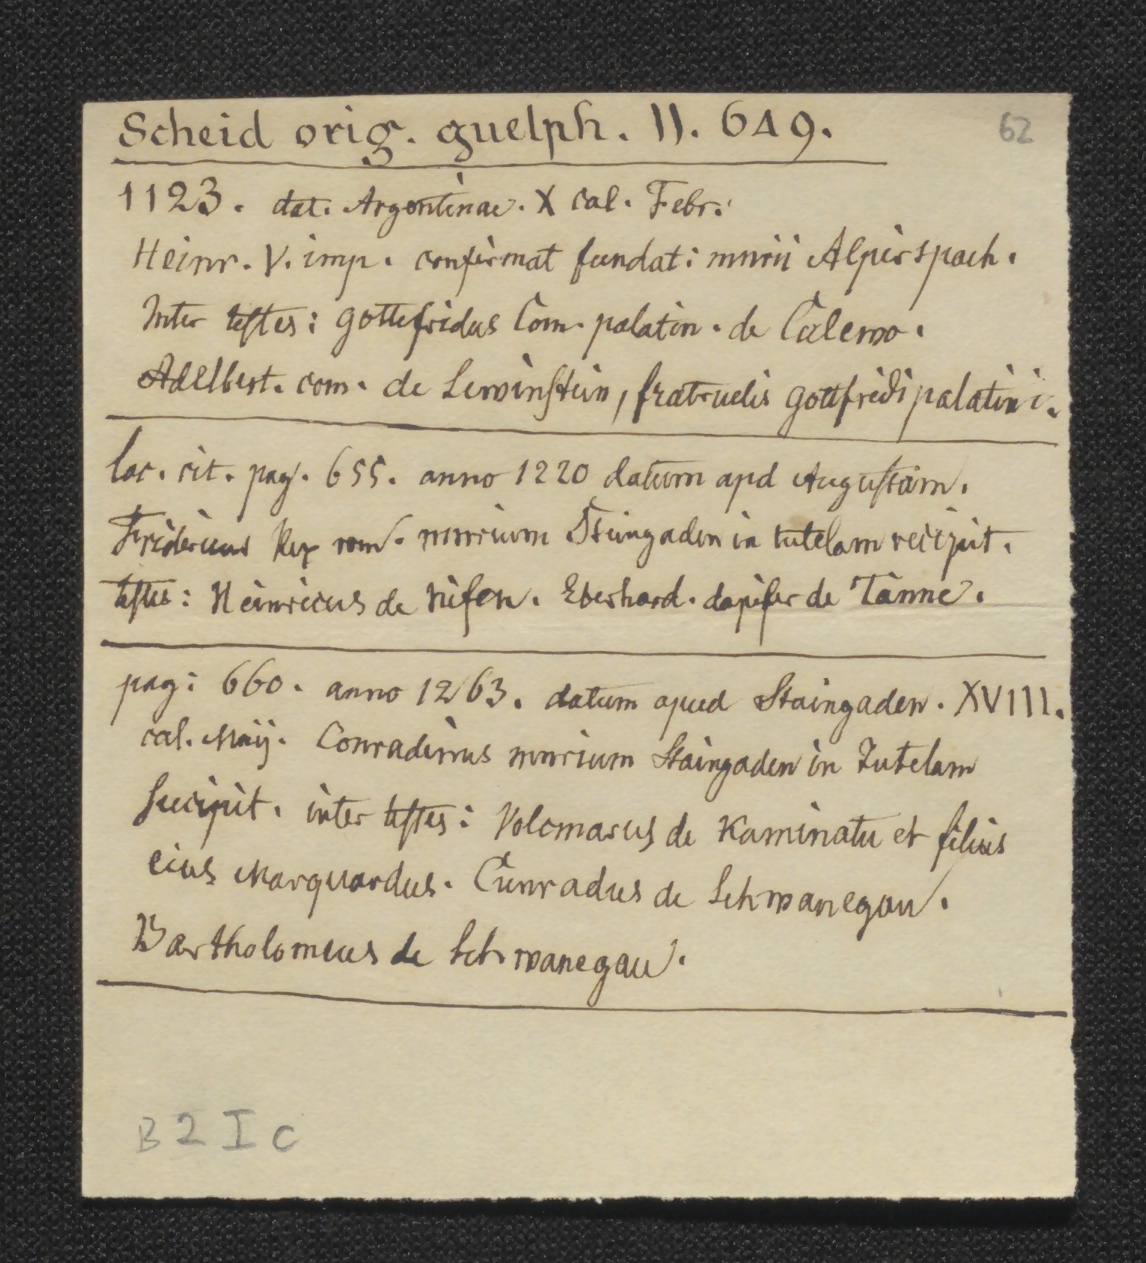 Scheid orig. guelph. II. 649.
62
1123. dat. Argentinae. X cal. Febr.
Heinr. V. imp. confirmat fundat: mnrii Alpirspach.
Inter testes: Gottefridus Com. palatin. de Calewo.
Adelbert. com. de Lewinstein, fratruelis Gottfredi palatini.
loc. cit. pag. 655. anno 1220 datum apd Augustam.
Fridericus Rex rom. mnrium Steingaden in tutelam recipit.
testes: Heinricus de Nifen. Eberhard. dapifer de Tanne.
pag: 660. anno 1263. datum apud Staingaden. XVIII.
cal. Maij. Conradinus mnrium Staingaden in Tutelam
suscipit. inter testes: Volcmarus de Kaminatu et filius
eius Marquardus. Cunradus de Schwanegau.
Bartholomeus de Schwanegau.
B 2 I c